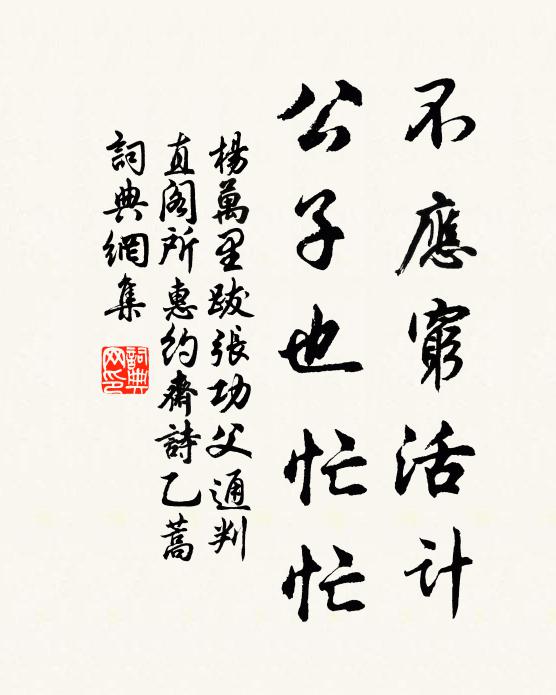 不應窮活計
公子也忙忙
楊萬里跋張功父通判
直閣所惠約齋詩乙藁
詞典網集
詞典网印